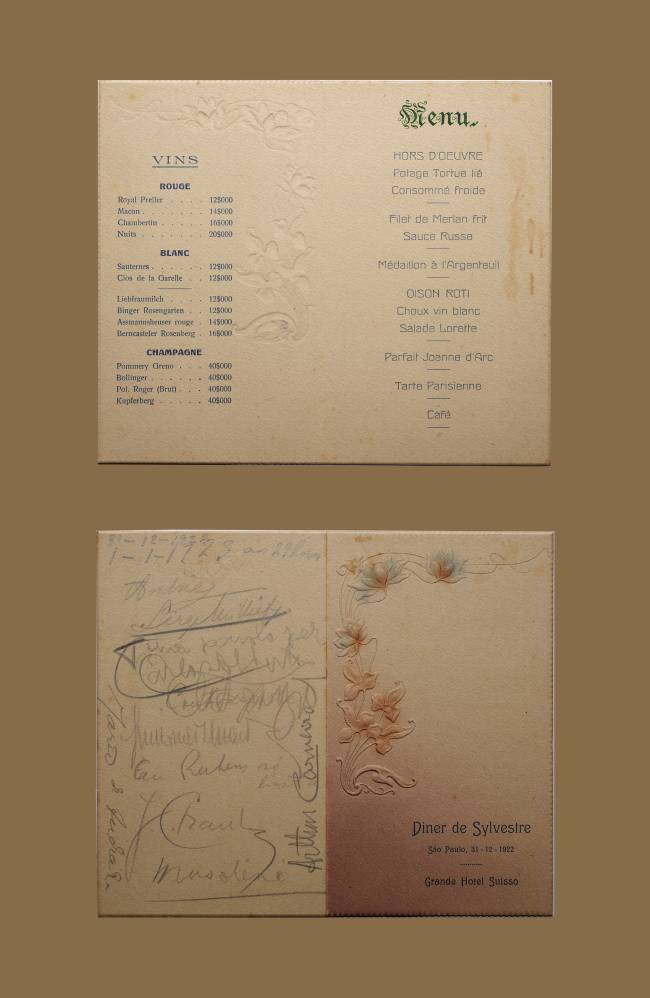 VINS
ROUGE
Royal Preller . . . . 12$000
Macon . . . . . . . 14$000
Chambertin . . . . . 16$000
Nuits . . . . . . . 20$000
BLANC
Sauternes . . . . . . 12$000
Clos de la Garelle . . 12$000
Liebfraumilch . . . . 12$000
Binger Rosengarten . . 12$000
Assmannsheuser rouge . 14$000
Berncasteler Rosenberg . 16$000
CHAMPAGNE
Pommery Greno . . . 40$000
Bollinger . . . . . . 40$000
Pol. Roger (Brut) . . . 40$000
Kupferberg . . . . . 40$000
Menu.
HORS D'OEUVRE
Potage Tortue lié
Consommé froide
Filet de Merlan frit
Sauce Russe
Médaillon à l'Argenteuil
OISON ROTI
Choux vin blanc
Salade Lorette
Parfait Joanne d'Arc
Tarte Parisienne
Café
31-12-1922
1-1-1923 as 24 horas
Carlos Alberto
Arthur Carneiro
Diner de Sylvestre
São Paulo, 31-12-1922
Grande Hotel Suisso